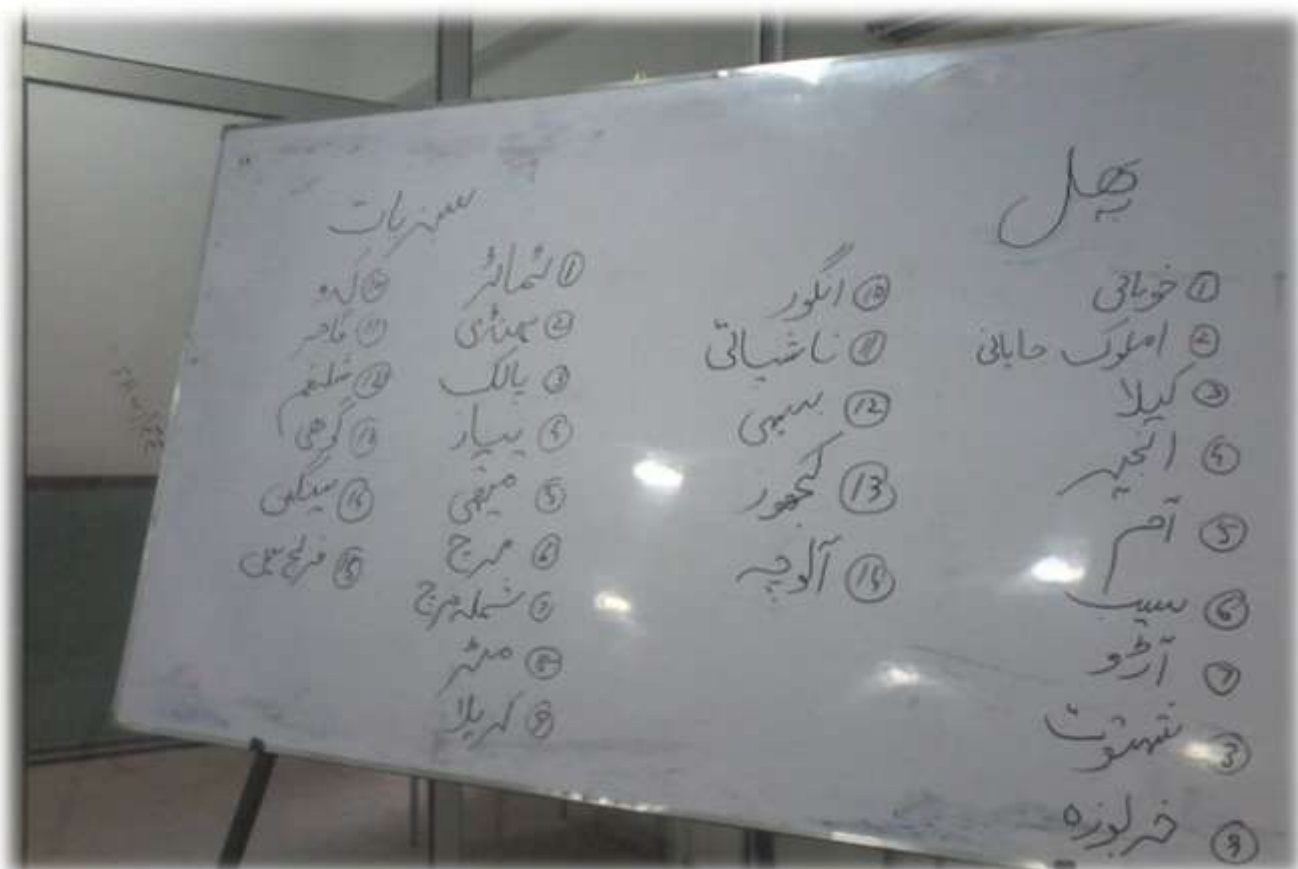 پھل
① خوبانی
② املوک جاپانی
③ کیلا
④ انجیر
⑤ آم
⑥ سیب
⑦ آڑو
⑧ شہتوت
⑨ خربوزہ
⑩ انگور
⑪ ناشپاتی
⑫ سیبی
⑬ کھجور
⑭ آلوچہ
سبزیات
① ٹماٹر
② بھنڈی
③ پالک
④ پیاز
⑤ میتھی
⑥ مرچ
⑦ شملہ مرچ
⑧ مٹر
⑨ کریلا
⑩ کدو
⑪ گاجر
⑫ شلغم
⑬ گوبھی
⑭ بینگن
⑮ فرنچ بین